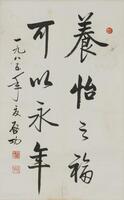 養怡之福
可以永年
一九八五年夏 啟功